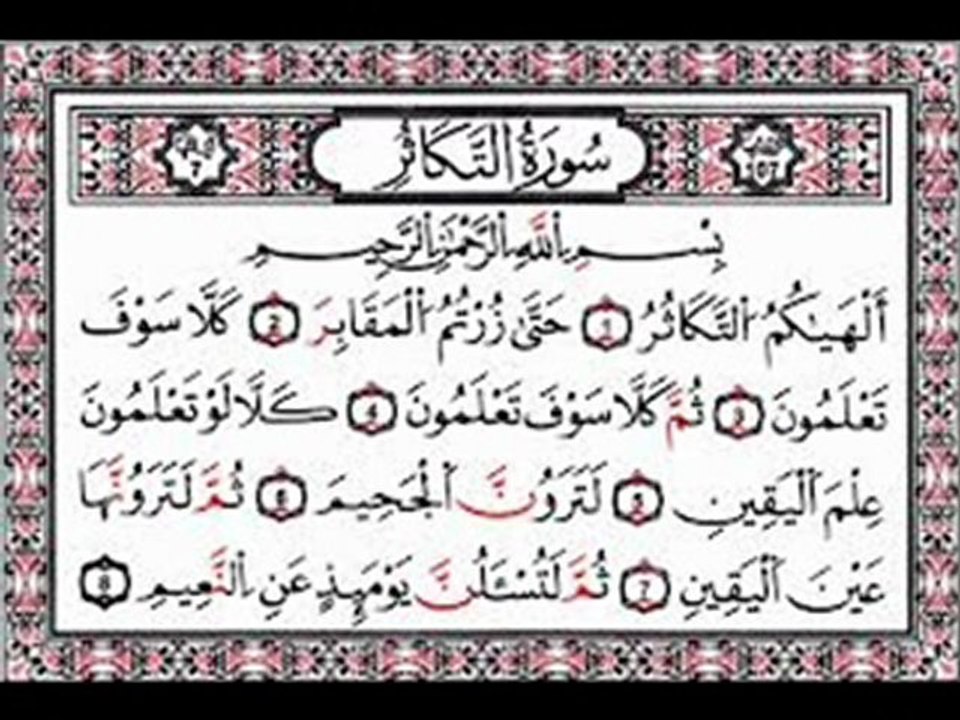 سُورَةُ التَّكَاثُرِ
بِسْمِ اللَّهِ الرَّحْمَٰنِ الرَّحِيمِ
أَلْهَىٰكُمُ التَّكَاثُرُ 1 حَتَّىٰ زُرْتُمُ الْمَقَابِرَ 2 كَلَّا سَوْفَ
تَعْلَمُونَ 3 ثُمَّ كَلَّا سَوْفَ تَعْلَمُونَ 4 كَلَّا لَوْ تَعْلَمُونَ
عِلْمَ الْيَقِينِ 5 لَتَرَوُنَّ الْجَحِيمَ 6 ثُمَّ لَتَرَوُنَّهَا
عَيْنَ الْيَقِينِ 7 ثُمَّ لَتُسْـَٔلُنَّ يَوْمَئِذٍ عَنِ النَّعِيمِ 8